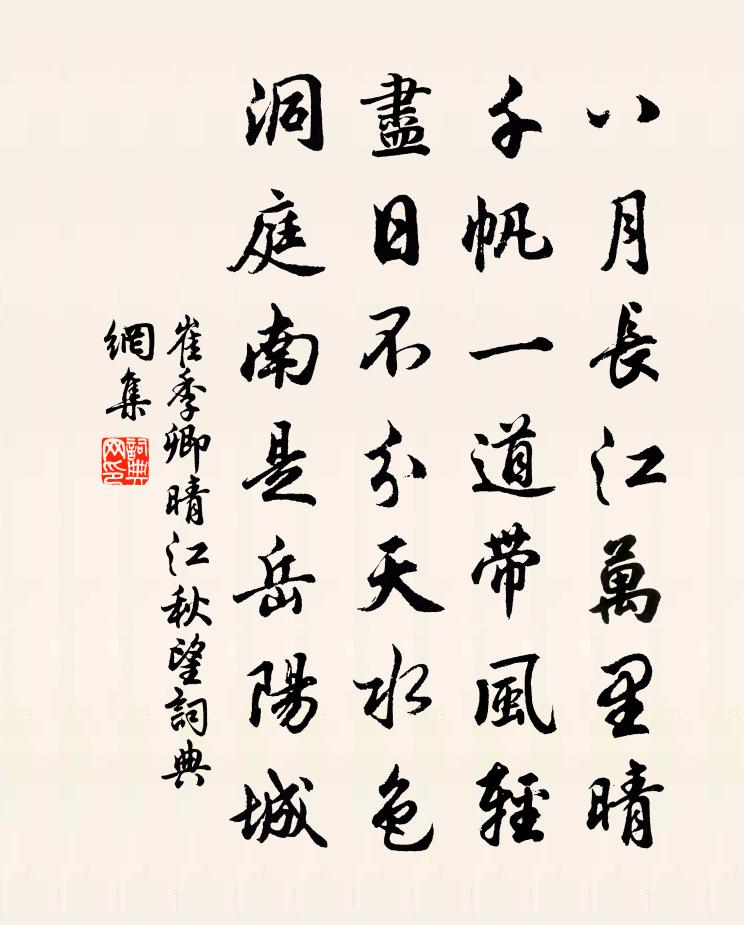 八月長江萬里晴
千帆一道帶風輕
盡日不分天水色
洞庭南是岳陽城
崔季卿晴江秋望詞典
網集
詞典
网印